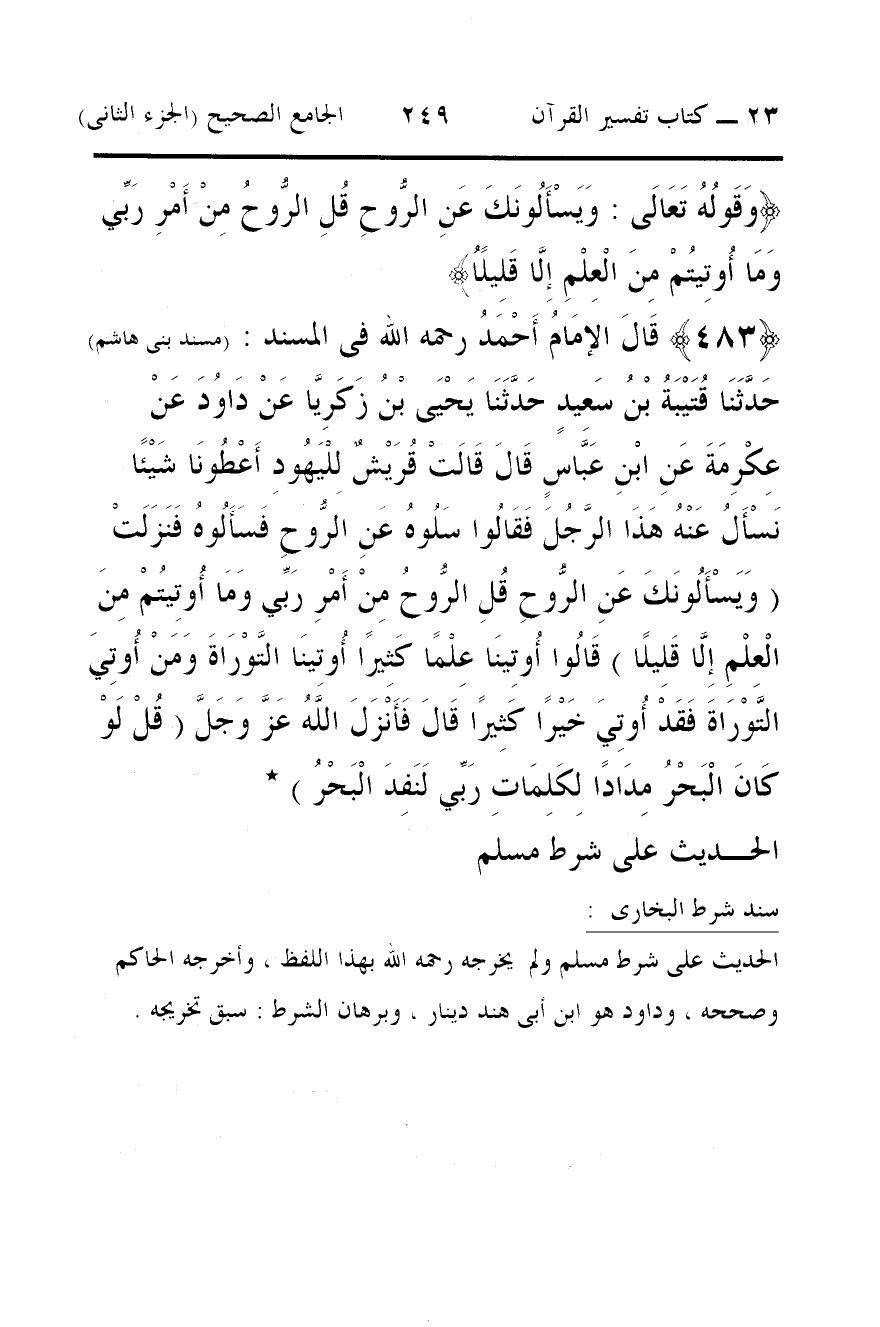 ٢٣ ــ كتاب تفسير القرآن ٢٤٩ الجامع الصحيح (الجزء الثانى)
﴿وَقَولُهُ تَعَالَى : وَيَسْأَلُونَكَ عَنِ الرُّوحِ قُلِ الرُّوحُ مِنْ أَمْرِ رَبِّي
وَمَا أُوتِيتُمْ مِنَ الْعِلْمِ إِلَّا قَلِيلًا﴾
﴿٤٨٣﴾ قَالَ الإِمَامُ أَحْمَدُ رحمه الله فى المسند : (مسند بنى هاشم)
حَدَّثَنَا قُتَيْبَةُ بْنُ سَعِيدٍ حَدَّثَنَا يَحْيَى بْنُ زَكَرِيَّا عَنْ دَاوُدَ عَنْ
عِكْرِمَةَ عَنِ ابْنِ عَبَّاسٍ قَالَ قَالَتْ قُرَيْشٌ لِلْيَهُودِ أَعْطُونَا شَيْئًا
نَسْأَلُ عَنْهُ هَذَا الرَّجُلَ فَقَالُوا سَلُوهُ عَنِ الرُّوحِ فَسَأَلُوهُ فَنَزَلَتْ
( وَيَسْأَلُونَكَ عَنِ الرُّوحِ قُلِ الرُّوحُ مِنْ أَمْرِ رَبِّي وَمَا أُوتِيتُمْ مِنَ
الْعِلْمِ إِلَّا قَلِيلًا ) قَالُوا أُوتِينَا عِلْمًا كَثِيرًا أُوتِينَا التَّوْرَاةَ وَمَنْ أُوتِيَ
التَّوْرَاةَ فَقَدْ أُوتِيَ خَيْرًا كَثِيرًا قَالَ فَأَنْزَلَ اللَّهُ عَزَّ وَجَلَّ ( قُلْ لَوْ
كَانَ الْبَحْرُ مِدَادًا لِكَلِمَاتِ رَبِّي لَنَفِدَ الْبَحْرُ ) *
الحـــديث على شرط مسلم
سند شرط البخارى :
الحديث على شرط مسلم ولم يخرجه رحمه الله بهذا اللفظ ، وأخرجه الحاكم
وصححه ، وداود هو ابن أبى هند دينار ، وبرهان الشرط : سبق تخريجه .